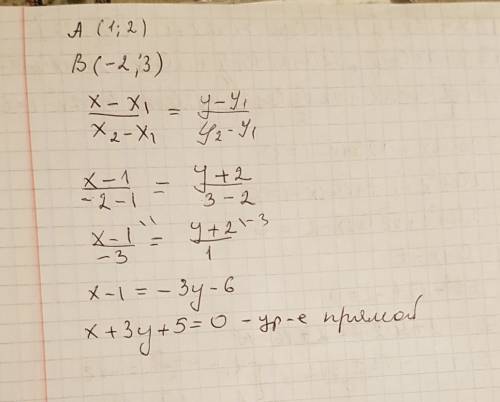 A (1; 2)
B (-2; 3)
(x - x₁)/(x₂ - x₁) = (y - y₁)/(y₂ - y₁)
(x - 1)/(-2 - 1) = (y + 2)/(3 - 2)
(x - 1)/(-3) \¹ = (y + 2)/1 \⁻³
x - 1 = -3y - 6
x + 3y + 5 = 0 - ур-е прямой